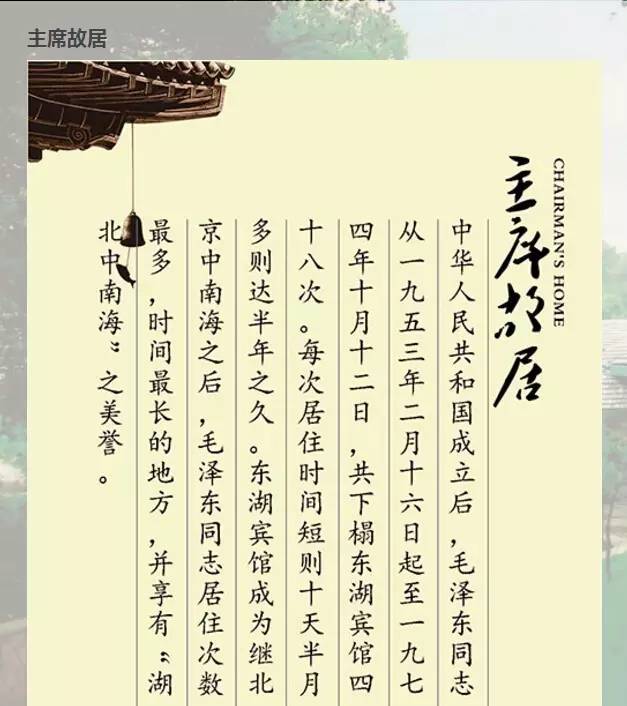 主席故居
主席故居
CHAIRMAN'S HOME
中华人民共和国成立后，毛泽东同志
从一九五三年二月十六日起至一九七
四年十月十二日，共下榻东湖宾馆四
十八次。每次居住时间短则十天半月
多则达半年之久。东湖宾馆成为继北
京中南海之后，毛泽东同志居住次数
最多，时间最长的地方，并享有“湖
北中南海”之美誉。